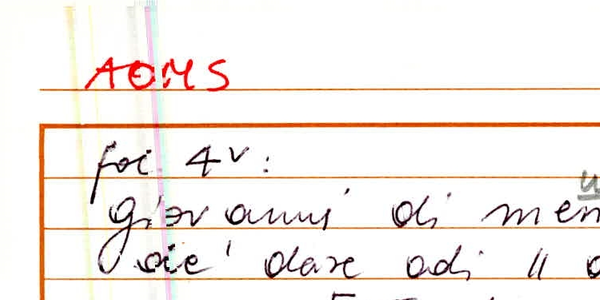 AOMS
fol. 4v:
giovanni di men
die' dare adi 11